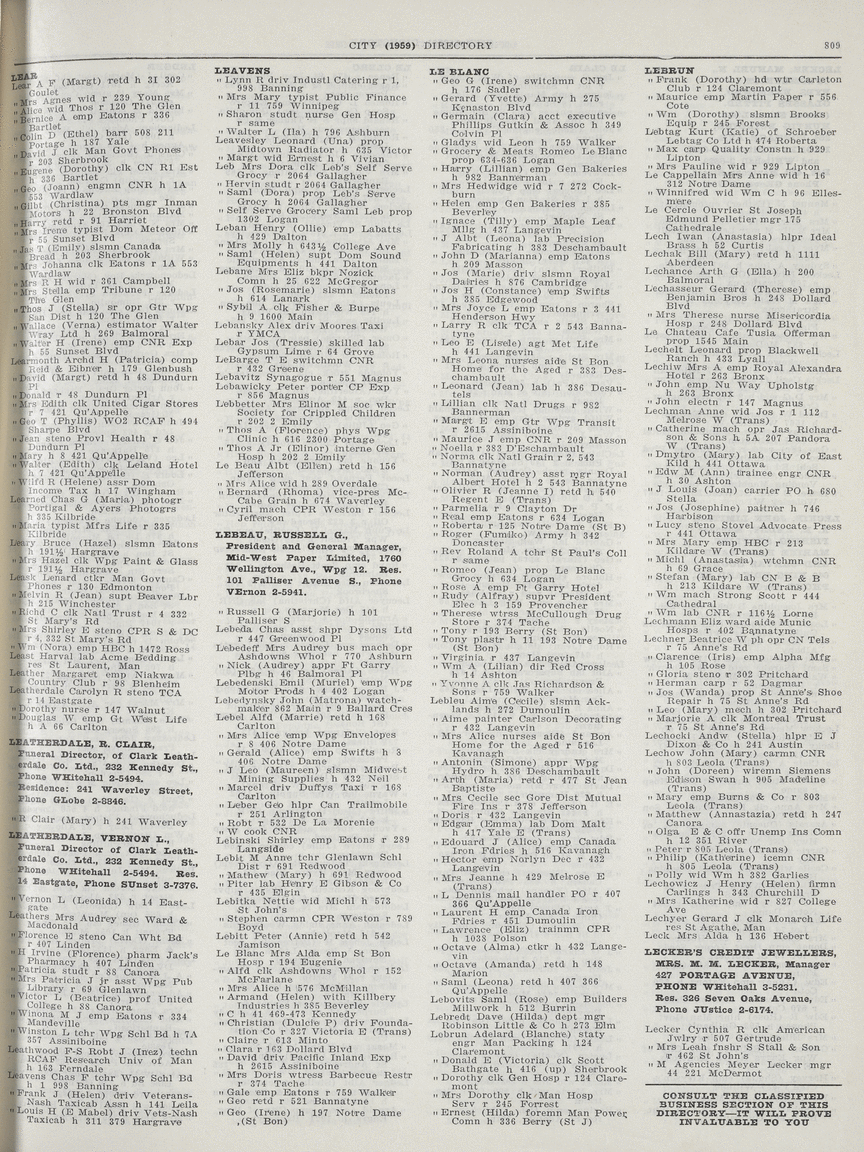 CITY (1959) DIRECTORY
809
LEAR
Lear A F (Margt) retd h 31 302
Goulet
" Mrs Agnes wid r 239 Young
" Alice wid Thos r 120 The Glen
" Bernice A emp Eatons r 336
Bartlet
" Colin D (Ethel) barr 508 211
Portage h 187 Yale
" David J clk Man Govt Phones
r 203 Sherbrook
" Eugene (Dorothy) clk CN R1 Est
h 336 Bartlet
" Geo (Joann) engmn CNR h 1A
553 Wardlaw
" Gilbt (Christina) pts mgr Inman
Motors h 22 Bronston Blvd
" Harry retd r 91 Harriet
" Mrs Irene typist Dom Meteor Off
r 55 Sunset Blvd
" Jas T (Emily) slsmn Canada
Bread h 203 Sherbrook
" Mrs Johanna clk Eatons r 1A 553
Wardlaw
" Mrs R H wid r 361 Campbell
" Mrs Stella emp Tribune r 120
The Glen
" Thos J (Stella) sr opr Gtr Wpg
San Dist h 120 The Glen
" Wallace (Verna) estimator Walter
Wray Ltd h 269 Balmoral
" Walter H (Irene) emp CNR Exp
h 55 Sunset Blvd
Learmonth Archd H (Patricia) comp
Reid & Eibner h 179 Glenbush
" David (Margt) retd h 48 Dundurn
Pl
" Donald r 48 Dundurn Pl
" Mrs Edith clk United Cigar Stores
r 7 421 Qu'Appelle
" Geo T (Phyllis) WO2 RCAF h 494
Sharpe Blvd
" Jean steno Provl Health r 48
Dundurn Pl
" Mary h 8 421 Qu'Appelle
" Walter (Edith) clk Leland Hotel
h 7 421 Qu'Appelle
" Wilfd R (Helene) assr Dom
Income Tax h 17 Wingham
Learned Chas G (Maria) photogr
Portigal & Ayers Photogrs
h 335 Kilbride
" Maria typist Mfrs Life r 335
Kilbride
Leary Bruce (Hazel) slsmn Eatons
h 191½ Hargrave
" Mrs Hazel clk Wpg Paint & Glass
r 191½ Hargrave
Leask Lenard ctkr Man Govt
Phones r 130 Edmonton
" Melvin R (Jean) supt Beaver Lbr
h 215 Winchester
" Richd C clk Natl Trust r 4 332
St Mary's Rd
" Mrs Shirley E steno CPR S & DC
r 4, 332 St Mary's Rd
" Wm (Nora) emp HBC h 1472 Ross
Least Harval lab Acme Bedding
res St Laurent, Man
Leather Margaret emp Niakwa
Country Club r 98 Blenheim
Leatherdale Carolyn R steno TCA
r 14 Eastgate
" Dorothy nurse r 147 Walnut
" Douglas W emp Gt West Life
h A 66 Carlton
LEATHERDALE, R. CLAIR,
Funeral Director, of Clark Leath-
erdale Co. Ltd., 232 Kennedy St.,
Phone WHitehall 2-5494.
Residence: 241 Waverley Street,
Phone GLobe 2-8846.
" R Clair (Mary) h 241 Waverley
LEATHERDALE, VERNON L.,
Funeral Director of Clark Leath-
erdale Co. Ltd., 232 Kennedy St.,
Phone WHitehall 2-5494. Res.
14 Eastgate, Phone SUnset 3-7376.
" Vernon L (Leonida) h 14 East-
gate
Leathers Mrs Audrey sec Ward &
Macdonald
" Florence E steno Can Wht Bd
r 407 Linden
" H Irvine (Florence) pharm Jack's
Pharmacy h 407 Linden
" Patricia studt r 88 Canora
" Mrs Patricia J jr asst Wpg Pub
Library r 69 Glenlawn
" Victor L (Beatrice) prof United
College h 88 Canora
" Winona M J emp Eatons r 334
Mandeville
" Winston L tchr Wpg Schl Bd h 7A
357 Assiniboine
Leathwood F-S Robt J (Inez) techn
RCAF Research Univ of Man
h 163 Ferndale
Leavens Chas F tchr Wpg Schl Bd
h 1 998 Banning
" Frank J (Helen) driv Veterans-
Nash Taxicab Assn h 141 Leila
" Louis H (E Mabel) driv Vets-Nash
Taxicab h 311 379 Hargrave
LEAVENS
" Lynn R driv Industl Catering r 1,
998 Banning
" Mrs Mary typist Public Finance
r 11 759 Winnipeg
" Sharon studt nurse Gen Hosp
r same
" Walter L (Ila) h 796 Ashburn
Leavesley Leonard (Una) prop
Midtown Radiator h 635 Victor
" Margt wid Ernest h 6 Vivian
Leb Mrs Dora clk Leb's Self Serve
Grocy r 2064 Gallagher
" Hervin studt r 2064 Gallagher
" Saml (Dora) prop Leb's Serve
Grocy h 2064 Gallagher
" Self Serve Grocery Saml Leb prop
1302 Logan
Leban Henry (Ollie) emp Labatts
h 429 Dalton
" Mrs Molly h 643½ College Ave
" Saml (Helen) supt Dom Sound
Equipments h 441 Dalton
Lebane Mrs Eliz bkpr Nozick
Comn h 25 622 McGregor
" Jos (Rosemarie) slsmn Eatons
h 614 Lanark
" Sybil A clk Fisher & Burpe
h 9 1600 Main
Lebansky Alex driv Moores Taxi
r YMCA
Lebar Jos (Tressie) skilled lab
Gypsum Lime r 64 Grove
LeBarge T E switchmn CNR
r 432 Greene
Lebavitz Synagogue r 551 Magnus
Lebawicky Peter porter CP Exp
r 856 Magnus
Lebbetter Mrs Elinor M soc wkr
Society for Crippled Children
r 202 2 Emily
" Thos A (Florence) phys Wpg
Clinic h 616 2300 Portage
" Thos A Jr (Elinor) interne Gen
Hosp h 202 2 Emily
Le Beau Albt (Ellen) retd h 156
Jefferson
" Mrs Alice wid h 289 Overdale
" Bernard (Rhoma) vice-pres Mc-
Cabe Grain h 674 Waverley
" Cyril mach CPR Weston r 156
Jefferson
LEBEAU, RUSSELL G.,
President and General Manager,
Mid-West Paper Limited, 1760
Wellington Ave., Wpg 12. Res.
101 Palliser Avenue S., Phone
VErnon 2-5941.
" Russell G (Marjorie) h 101
Palliser S
Lebeda Chas asst shpr Dysons Ltd
r 447 Greenwood Pl
Lebedeff Mrs Audrey bus mach opr
Ashdowns Whol r 770 Ashburn
" Nick (Audrey) appr Ft Garry
Plbg h 46 Balmoral Pl
Lebedenski Emil (Muriel) emp Wpg
Motor Prods h 4 402 Logan
Lebedynsky John (Matrona) watch-
maker 862 Main r 9 Ballard Cres
Lebel Alfd (Marrie) retd h 168
Carlton
" Mrs Alice emp Wpg Envelopes
r 8 406 Notre Dame
" Gerald (Alice) emp Swifts h 3
406 Notre Dame
" J Leo (Maureen) slsmn Midwest
Mining Supplies h 432 Neil
" Marcel driv Duffys Taxi r 168
Carlton
" Leber Geo hlpr Can Trailmobile
r 251 Arlington
" Robt r 532 De La Morenie
" W cook CNR
Lebinski Shirley emp Eatons r 289
Langside
Lebit M Anne tchr Glenlawn Schl
Dist r 691 Redwood
" Mathew (Mary) h 691 Redwood
" Piter lab Henry E Gibson & Co
r 435 Elgin
Lebitka Nettie wid Michl h 573
St John's
" Stephen carmn CPR Weston r 789
Boyd
Lebitt Peter (Annie) retd h 542
Jamison
Le Blanc Mrs Alda emp St Bon
Hosp r 194 Eugenie
" Alfd clk Ashdowns Whol r 152
McFarlane
" Mrs Alice h 576 McMillan
" Armand (Helen) with Killbery
Industries h 385 Beverley
" C h 41 469-473 Kennedy
" Christian (Dulcie P) driv Founda-
tion Co r 327 Victoria E (Trans)
" Claire r 613 Minto
" Clara r 163 Dollard Blvd
" David driv Pacific Inland Exp
h 2615 Assiniboine
" Mrs Doris wtress Barbecue Restr
r 374 Tache
" Gale emp Eatons r 759 Walker
" Geo retd r 521 Bannatyne
" Geo (Irene) h 197 Notre Dame
(St Bon)
LE BLANC
" Geo G (Irene) switchmn CNR
h 176 Sadler
" Gerard (Yvette) Army h 275
Kenaston Blvd
" Germain (Clara) acct executive
Phillips Gutkin & Assoc h 349
Colvin Pl
" Gladys wid Leon h 759 Walker
" Grocery & Meats Romeo Le Blanc
prop 634-636 Logan
" Harry (Lillian) emp Gen Bakeries
h 982 Bannerman
" Mrs Hedwidge wid r 7 272 Cock-
burn
" Helen emp Gen Bakeries r 385
Beverley
" Ignace (Tilly) emp Maple Leaf
Mllg h 437 Langevin
" J Albt (Leona) lab Precision
Fabricating h 383 Deschambault
" John D (Marianna) emp Eatons
h 209 Masson
" Jos (Marie) driv slsmn Royal
Dairies h 876 Cambridge
" Jos H (Constance) emp Swifts
h 385 Edgewood
" Mrs Joyce L emp Eatons r 3 441
Henderson Hwy
" Larry R clk TCA r 2 543 Banna-
tyne
" Leo E (Lisele) agt Met Life
h 441 Langevin
" Mrs Leona nurses aide St Bon
Home for the Aged r 383 Des-
chambault
" Leonard (Jean) lab h 386 Desau-
tels
" Lillian clk Natl Drugs r 982
Bannerman
" Margt E emp Gtr Wpg Transit
r 2615 Assiniboine
" Maurice J emp CNR r 209 Masson
" Noella r 383 D'Eschambault
" Norma clk Natl Grain r 2, 543
Bannatyne
" Norman (Audrey) asst mgr Royal
Albert Hotel h 2 543 Bannatyne
" Olivier R (Jeanne I) retd h 540
Regent E (Trans)
" Parmelia r 9 Clayton Dr
" Real emp Eatons r 634 Logan
" Roberta r 125 Notre Dame (St B)
" Roger (Fumiko) Army h 342
Doncaster
" Rev Roland A tchr St Paul's Coll
r same
" Romeo (Jean) prop Le Blanc
Grocy h 634 Logan
" Rose A emp Ft Garry Hotel
" Rudy (Alfray) supvr President
Elec h 3 159 Provencher
" Therese wtrss McCullough Drug
Store r 374 Tache
" Tony r 193 Berry (St Bon)
" Tony plastr h 11 193 Notre Dame
(St Bon)
" Virginia r 437 Langevin
" Wm A (Lillian) dir Red Cross
h 14 Ashton
" Yvonne A clk Jas Richardson &
Sons r 759 Walker
Lebleu Aime (Cecile) slsmn Ack-
lands h 272 Dumoulin
" Aime painter Carlson Decorating
r 432 Langevin
" Mrs Alice nurses aide St Bon
Home for the Aged r 516
Kavanagh
" Antonin (Simone) appr Wpg
Hydro h 386 Deschambault
" Arth (Maria) retd r 477 St Jean
Baptiste
" Mrs Cecile sec Gore Dist Mutual
Fire Ins r 378 Jefferson
" Doris r 432 Langevin
" Edgar (Emma) lab Dom Malt
h 417 Yale E (Trans)
" Edouard J (Alice) emp Canada
Iron Fdries h 516 Kavanagh
" Hector emp Norlyn Dec r 432
Langevin
" Mrs Jeanne h 429 Melrose E
(Trans)
" L Dennis mail handler PO r 407
366 Qu'Appelle
" Laurent H emp Canada Iron
Fdries r 451 Dumoulin
" Lawrence (Eliz) trainmn CPR
h 1038 Polson
" Octave (Alma) ctkr h 432 Lange-
vin
" Octave (Amanda) retd h 148
Marion
" Saml (Leona) retd h 407 366
Qu'Appelle
Lebovits Saml (Rose) emp Builders
Millwork h 512 Burrin
Lebredt Dave (Hilda) dept mgr
Robinson Little & Co h 273 Elm
Lebrun Adelard (Blanche) staty
engr Man Packing h 124
Claremont
" Donald E (Victoria) clk Scott
Bathgate h 416 (up) Sherbrook
" Dorothy clk Gen Hosp r 124 Clare-
mont
" Mrs Dorothy clk Man Hosp
Serv r 245 Forrest
" Ernest (Hilda) foremn Man Power
Comn h 336 Berry (St J)
LEBRUN
" Frank (Dorothy) hd wtr Carleton
Club r 124 Claremont
" Maurice emp Martin Paper r 556
Cote
" Wm (Dorothy) slsmn Brooks
Equip r 245 Forest
Lebtag Kurt (Katie) of Schroeber
Lebtag Co Ltd h 474 Roberta
" Max carp Quality Constn h 929
Lipton
" Mrs Pauline wid r 929 Lipton
Le Cappelain Mrs Anne wid h 16
312 Notre Dame
" Winnifred wid Wm C h 96 Elles-
mere
Le Cercle Ouvrier St Joseph
Edmund Pelletier mgr 175
Cathedrale
Lech Iwan (Anastasia) hlpr Ideal
Brass h 52 Curtis
Lechak Bill (Mary) retd h 1111
Aberdeen
Lechance Arth G (Ella) h 200
Balmoral
Lechasseur Gerard (Therese) emp
Benjamin Bros h 248 Dollard
Blvd
" Mrs Therese nurse Misericordia
Hosp r 248 Dollard Blvd
Le Chateau Cafe Tusia Offerman
prop 1545 Main
Lechelt Leonard prop Blackwell
Ranch h 433 Lyall
Lechiw Mrs A emp Royal Alexandra
Hotel r 263 Bronx
" John emp Nu Way Upholstg
h 263 Bronx
" John electn r 147 Magnus
Lechman Anne wid Jos r 1 112
Melrose W (Trans)
" Catherine mach opr Jas Richard-
son & Sons h 5A 207 Pandora
W (Trans)
" Dmytro (Mary) lab City of East
Kild h 441 Ottawa
" Edw M (Ann) trainee engr CNR
h 30 Ashton
" J Louis (Joan) carrier PO h 680
Stella
" Jos (Josephine) paitner h 746
Harbison
" Lucy steno Stovel Advocate Press
r 441 Ottawa
" Mrs Mary emp HBC r 213
Kildare W (Trans)
" Michl (Anastasia) wtchmn CNR
h 69 Grace
" Stefan (Mary) lab CN B & B
h 213 Kildare W (Trans)
" Wm mach Strong Scott r 444
Cathedral
" Wm lab CNR r 116½ Lorne
Lechmann Eliz ward aide Munic
Hosps r 402 Bannatyne
Lechner Beatrice W ph opr CN Tels
r 75 Anne's Rd
" Clarence (Iris) emp Alpha Mfg
h 105 Rose
" Gloria steno r 302 Pritchard
" Herman carp r 52 Dagmar
" Jos (Wanda) prop St Anne's Shoe
Repair h 75 St Anne's Rd
" Leo (Mary) mech h 302 Pritchard
" Marjorie A clk Montreal Trust
r 75 St Anne's Rd
Lechocki Andw (Stella) hlpr E J
Dixon & Co h 241 Austin
Lechow John (Mary) carmn CNR
h 803 Leola (Trans)
" John (Doreen) wiremn Siemens
Edison Swan h 905 Madeline
(Trans)
" Mary emp Burns & Co r 803
Leola (Trans)
" Matthew (Annastazia) retd h 247
Canora
" Olga E & C offr Unemp Ins Comn
h 12 351 River
" Peter r 805 Leola (Trans)
" Philip (Katherine) icemn CNR
h 805 Leola (Trans)
" Polly wid Wm h 382 Garlies
Lechowicz J Henry (Helen) firmn
Carlings h 343 Churchill D
" Mrs Katherine wid r 827 College
Ave
Lechyor Gerard J clk Monarch Life
res St Agathe, Man
Leck Mrs Alda h 136 Hebert
LECKER'S CREDIT JEWELLERS,
MRS. M. M. LECKER, Manager
427 PORTAGE AVENUE,
PHONE WHitehall 3-5231.
Res. 326 Seven Oaks Avenue,
Phone JUstice 2-6174.
Lecker Cynthia R clk American
Jwlry r 507 Gertrude
" Mrs Leah fnshr S Stall & Son
r 462 St John's
" M Agencies Meyer Lecker mgr
44 221 McDermot
CONSULT THE CLASSIFIED
BUSINESS SECTION OF THIS
DIRECTORY—IT WILL PROVE
INVALUABLE TO YOU